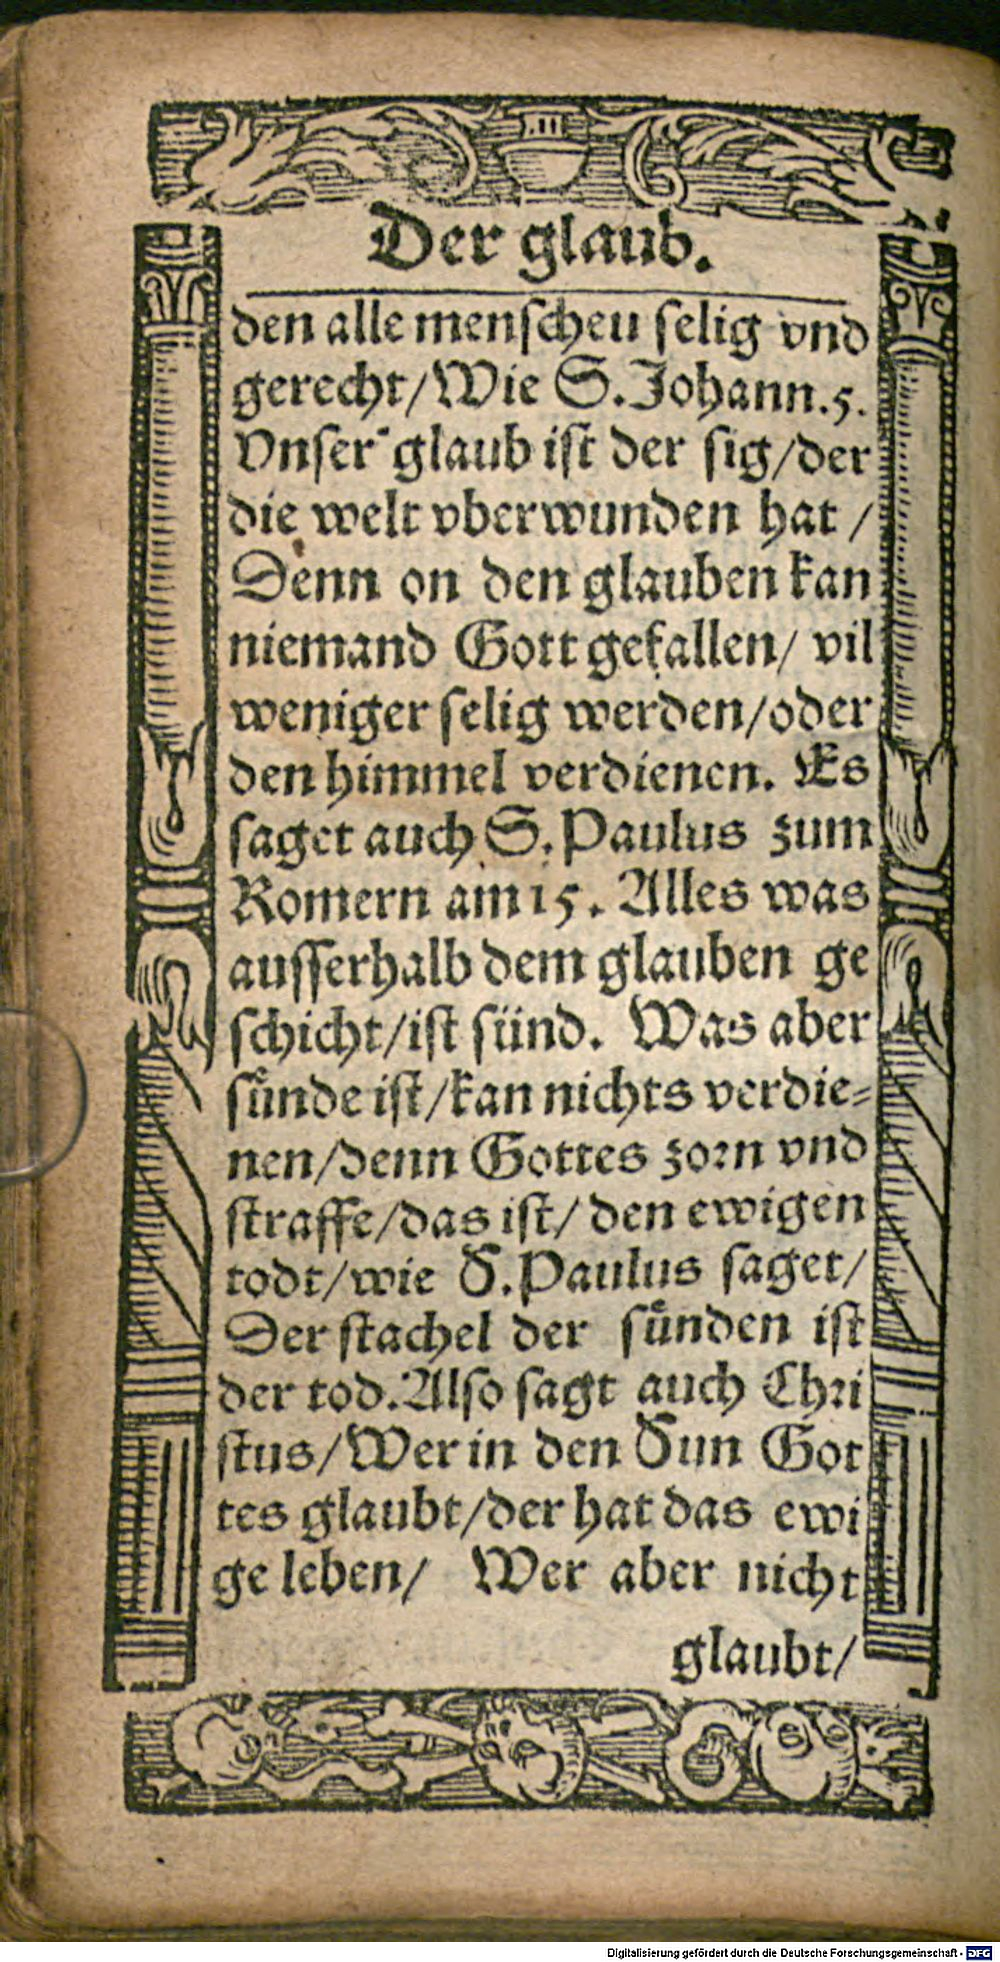 Der glaub.
den alle menscheu selig vnd
gerecht/Wie S.Johann.5.
Vnser glaub ist der sig/der
die welt vberwunden hat /
Denn on den glauben kan
niemand Gott gefallen/ vil
weniger selig werden/oder
den himmel verdienen. Es
saget auch S.Paulus zum
Romern am 15. Alles was
ausserhalb dem glauben ge
schicht/ist sünd. Was aber
suͤnde ist/kan nichts verdie=
nen/denn Gottes zorn vnd
straffe/das ist/ den ewigen
todt/wie S.Paulus saget/
Der stachel der suͤnden ist
der tod. Also sagt auch Chri
stus/Wer in den Sun Got
tes glaubt/der hat das ewi
ge leben/ Wer aber nicht
glaubt/
Digitalisierung gefördert durch die Deutsche Forschungsgemeinschaft - DFG